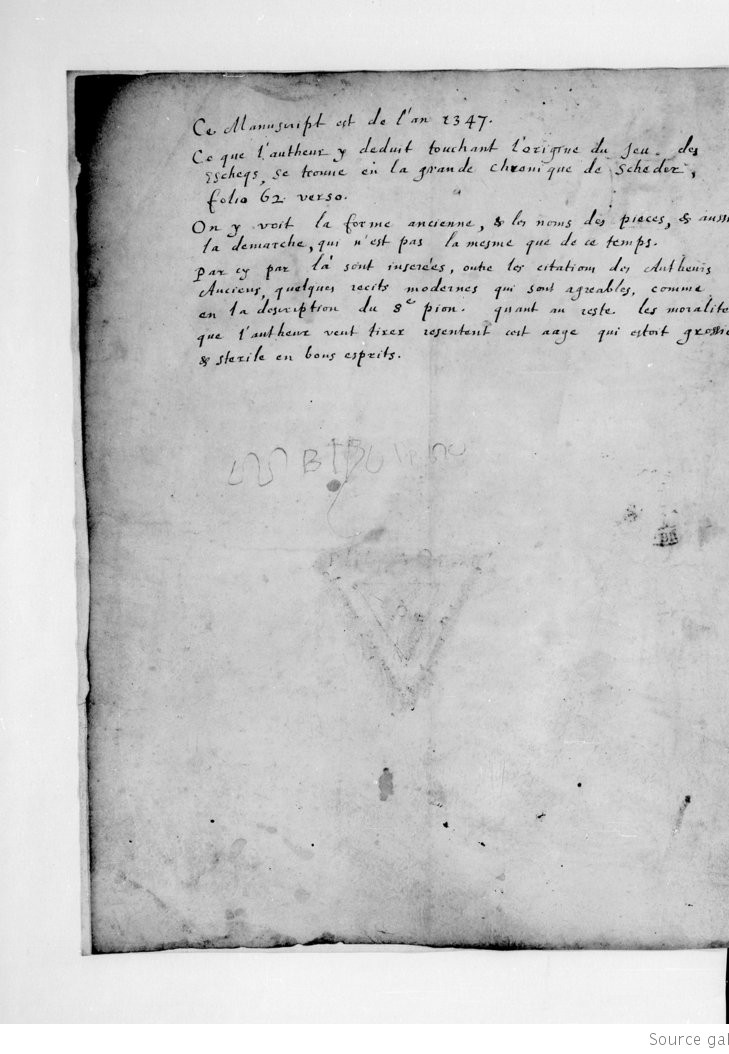 Ce Manuscript est de l'an 1347.
Ce que l'autheur y deduit touchant l'origine du Jeu des
Escheqs, se trouue en la grande chronique de Scheder,
folio 62 verso.
On y voit la forme ancienne, & les noms des pieces, & aussi
la demarche, qui n'est pas la mesme que de ce temps.
Par cy par là sont inserées, outre les citations des Autheurs
Anciens, quelques recits modernes qui sont agreables, comme
en la description du 8e pion. quant au reste les moralite
que l'autheur veut tirer resentent cest aage qui estoit grossie
& sterile en bons esprits.
Source gal